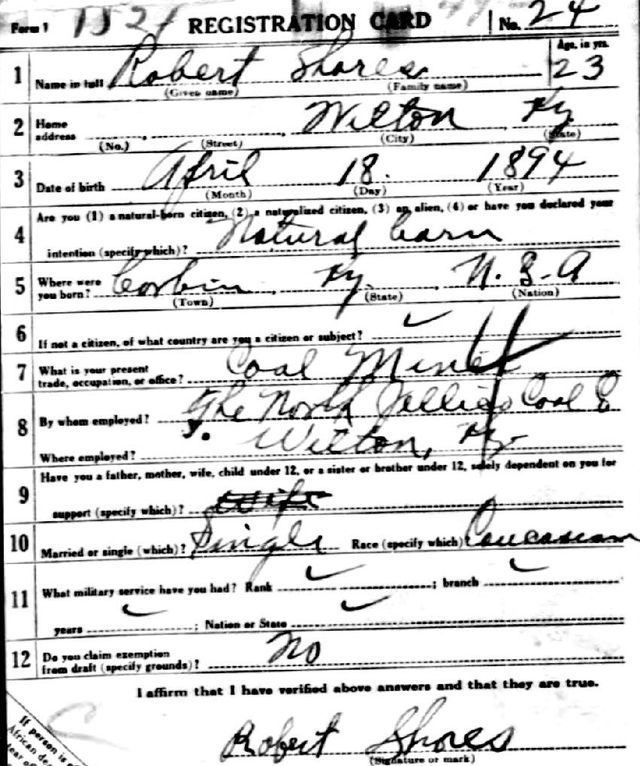 Form 1 REGISTRATION CARD No. 24
1 Name in full Robert Shores Age, in yrs. 23
(Given name) (Family name)
2 Home address Wilton Ky
(No.) (Street) (City) (State)
3 Date of birth April 18. 1894
(Month) (Day) (Year)
4 Are you (1) a natural-born citizen, (2) a naturalized citizen, (3) an alien, (4) or have you declared your
intention (specify which)? Natural barn
5 Where were you born? Corbin, Ky. U.S.A
(Town) (State) (Nation)
6 If not a citizen, of what country are you a citizen or subject?
7 What is your present trade, occupation, or office? Coal Miner
8 By whom employed? The North Jellico Coal C
Where employed? Wilton, Ky.
9 Have you a father, mother, wife, child under 12, or a sister or brother under 12, solely dependent on you for
support (specify which)? wife
10 Married or single (which)? Single Race (specify which)? Caucasian
11 What military service have you had? Rank ; branch
years ; Nation or State
12 Do you claim exemption from draft (specify grounds)? No
I affirm that I have verified above answers and that they are true.
Robert Shores
(Signature or mark)
If person is
African de